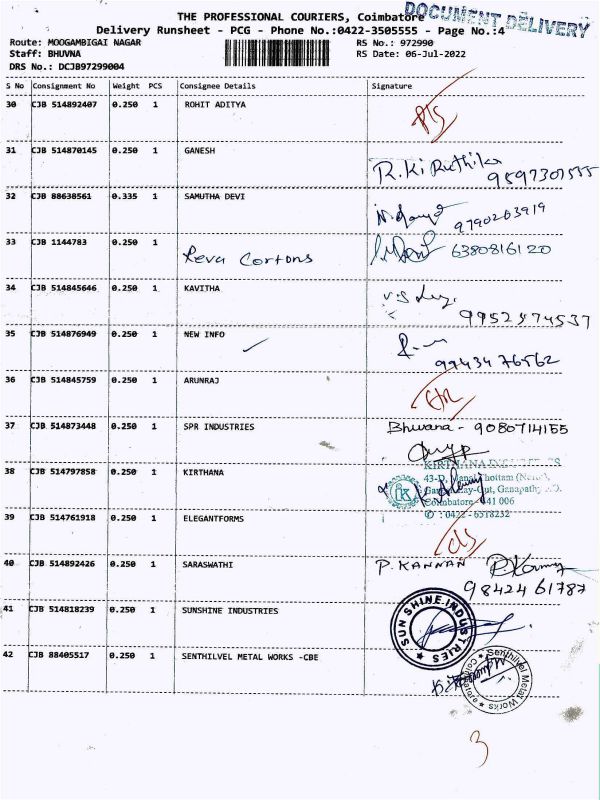 THE PROFESSIONAL COURIERS, Coimbatore
DOCUMENT DELIVERY
Delivery Runsheet - PCG - Phone No.:0422-3505555 - Page No.:4
Route: MOOGAMBIGAI NAGAR RS No.: 972990
Staff: BHUVNA RS Date: 06-Jul-2022
DRS No.: DCJB97299004
S No Consignment No Weight PCS Consignee Details Signature
30 CJB 514892407 0.250 1 ROHIT ADITYA
31 CJB 514870145 0.250 1 GANESH
R.Kiruthika
32 CJB 88638561 0.335 1 SAMUTHA DEVI
9790263919
33 CJB 1144783 0.250 1
Reva Cortons 6380816120
34 CJB 514845646 0.250 1 KAVITHA
9952974537
35 CJB 514876949 0.250 1 NEW INFO
9943476562
36 CJB 514845759 0.250 1 ARUNRAJ
37 CJB 514873448 0.250 1 SPR INDUSTRIES Bhuvana - 9080714155
38 CJB 514797858 0.250 1 KIRTHANA
Coimbatore - 641 006
✆ : 0422 - 6518232
39 CJB 514761918 0.250 1 ELEGANTFORMS
40 CJB 514892426 0.250 1 SARASWATHI P. KANNAN
98424 61787
41 CJB 514818239 0.250 1 SUNSHINE INDUSTRIES
SUN SHINE INDUSTRIES
42 CJB 88405517 0.250 1 SENTHILVEL METAL WORKS -CBE
Senthilvel Metal Works
Coimbatore
3